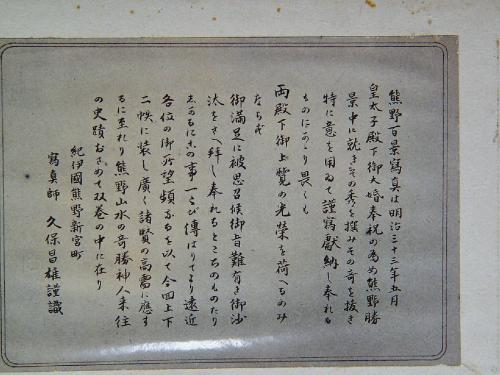 熊野百景寫真は明治三十三年五月
皇太子殿下御大婚奉祝の為め熊野勝
景中に就きその秀を撰みその奇を抜き
特に意を用ゐて謹寫獻納し奉れる
ものにかゝり畏くも
両殿下御上覽の光榮を荷へるのみ
ならず
御満足に被思召候御旨難有き御沙
汰をさへ拜し奉れるところのものたり
しかるにこの事一たび傳はりてより遠近
各位の御所望頻なるを以て今回上下
二帙に装し廣く諸賢の高需に應す
るに至れり熊野山水の奇勝神人来往
の史蹟おさめて双巻の中に在り
紀伊國熊野新宮町
寫真師 久保昌雄謹識